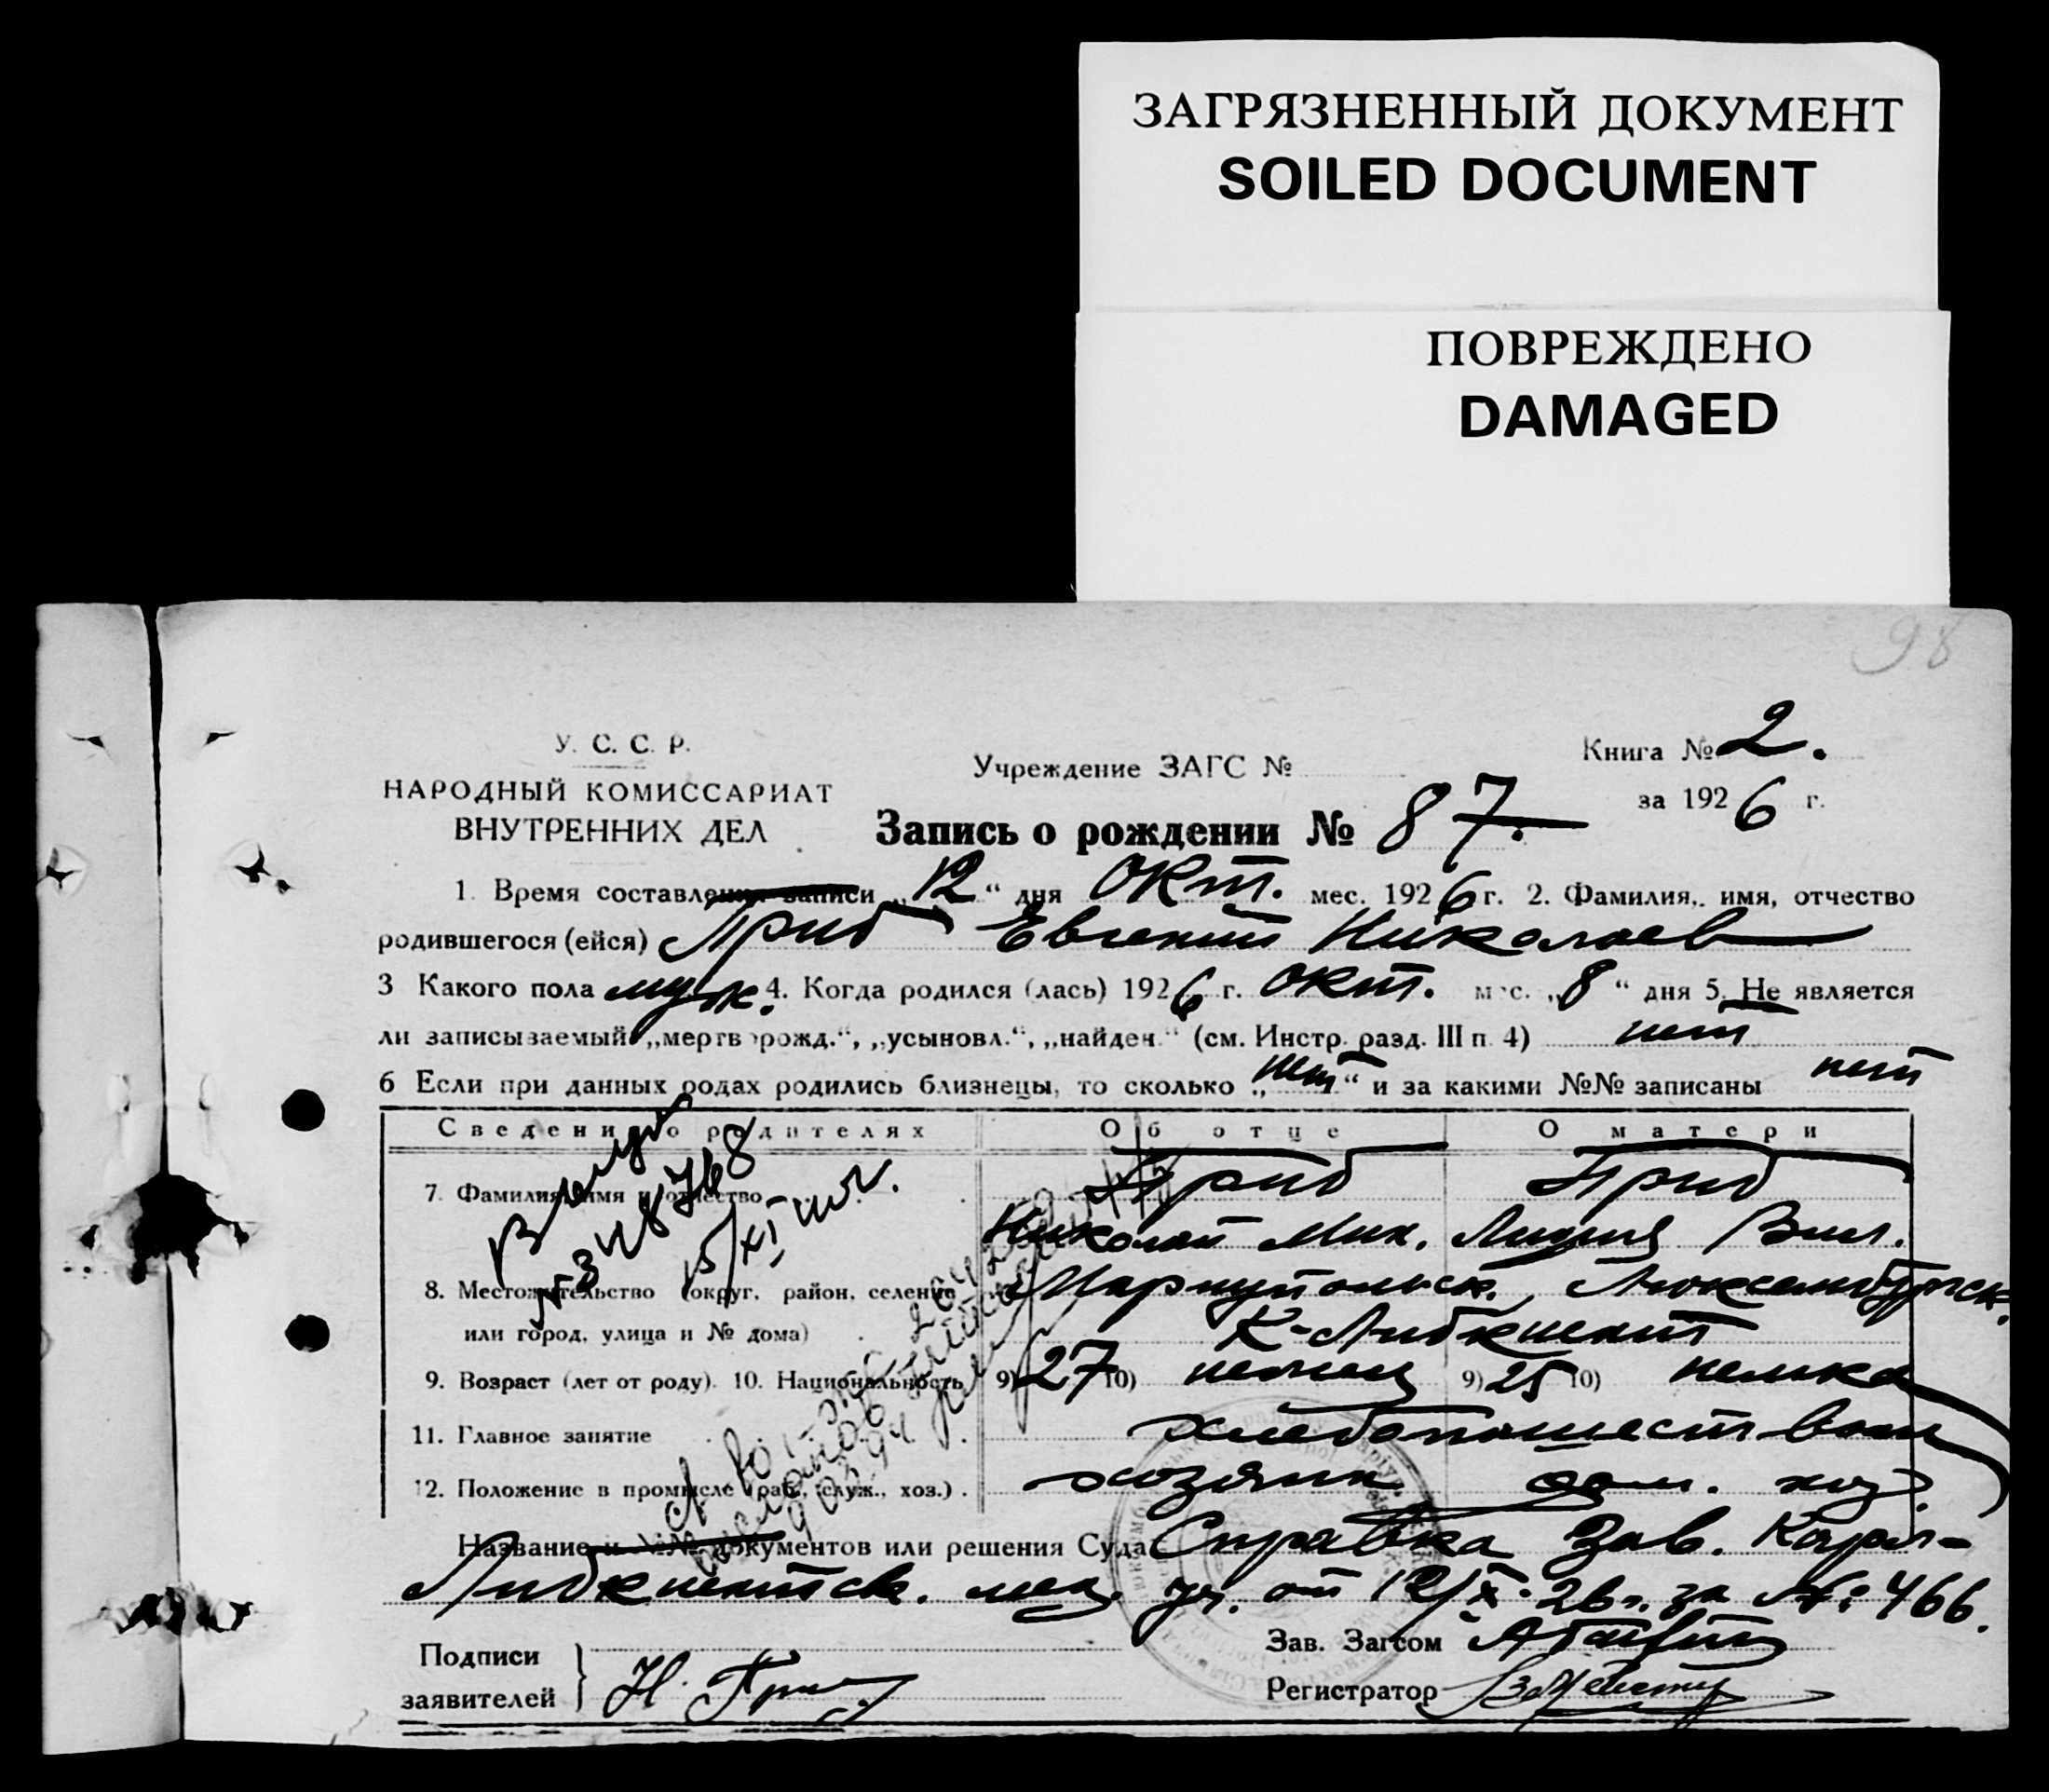 ЗАГРЯЗНЕННЫЙ ДОКУМЕНТ
SOILED DOCUMENT
ПОВРЕЖДЕНО
DAMAGED
98
У. С. С. Р.
НАРОДНЫЙ КОМИССАРИАТ
ВНУТРЕННИХ ДЕЛ
Учреждение ЗАГС №
Книга № 2.
за 1926 г.
Запись о рождении № 87.
1. Время составления записи „12“ дня окт. мес. 1926 г. 2. Фамилия, имя, отчество
родившегося (ейся) Приб Евгений Николаев
3 Какого пола муж. 4. Когда родился (лась) 1926 г. окт. мес. „8“ дня 5. Не является
ли записываемый „мертворожд.“, „усыновл.“, „найден.“ (см. Инстр. разд. III п. 4) нет
6 Если при данных родах родились близнецы, то сколько „нет“ и за какими №№ записаны нет
Сведения о родителях Об отце О матери
7. Фамилия, имя и отчество Приб Приб
Николай Мих. Лидия Вил.
8. Местожительство (округ, район, селение Мариупольск. Люксембургск.
или город, улица и № дома) К-Либкнехт
9. Возраст (лет от роду). 10. Национальность 9) 27 10) немец 9) 25 10) немка
11. Главное занятие хлебопашеством
12. Положение в промысле (раб., служ., хоз.) хозяин дом. хоз.
Название и №№ документов или решения Суда Справка Зав. Карл-
Либкнехтск. мед. уч. от 12/X-26 г. за №: 466.
Подписи
заявителей
Н. При
Зав. Загсом
Регистратор